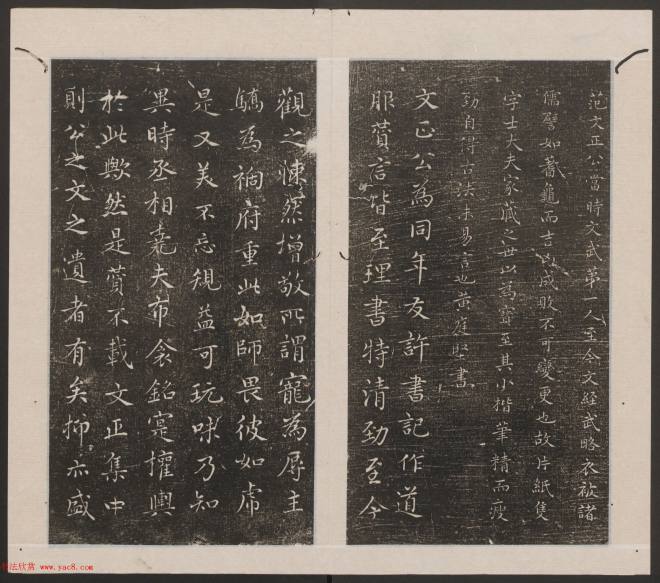 范文正公當時文武第一人至今文經武略衣被諸
儒譬如蓍龜而吉凶成敗不可變更也故片紙隻
字士大夫家藏之世以為寶至其小楷筆精而瘦
勁自得古法未易言也黃庭堅書
文正公為同年友許書記作道
服贊言皆至理書特清勁至今
觀之悚然增敬所謂寵為辱主
驕為禍府重此如師畏彼如虎
是又美不忘規益可玩味乃知
異時丞相堯夫布衾銘寔權輿
於此歟然是贊不載文正集中
則公之文之遺者有矣抑亦盛
书法欣赏 www.yac8.com